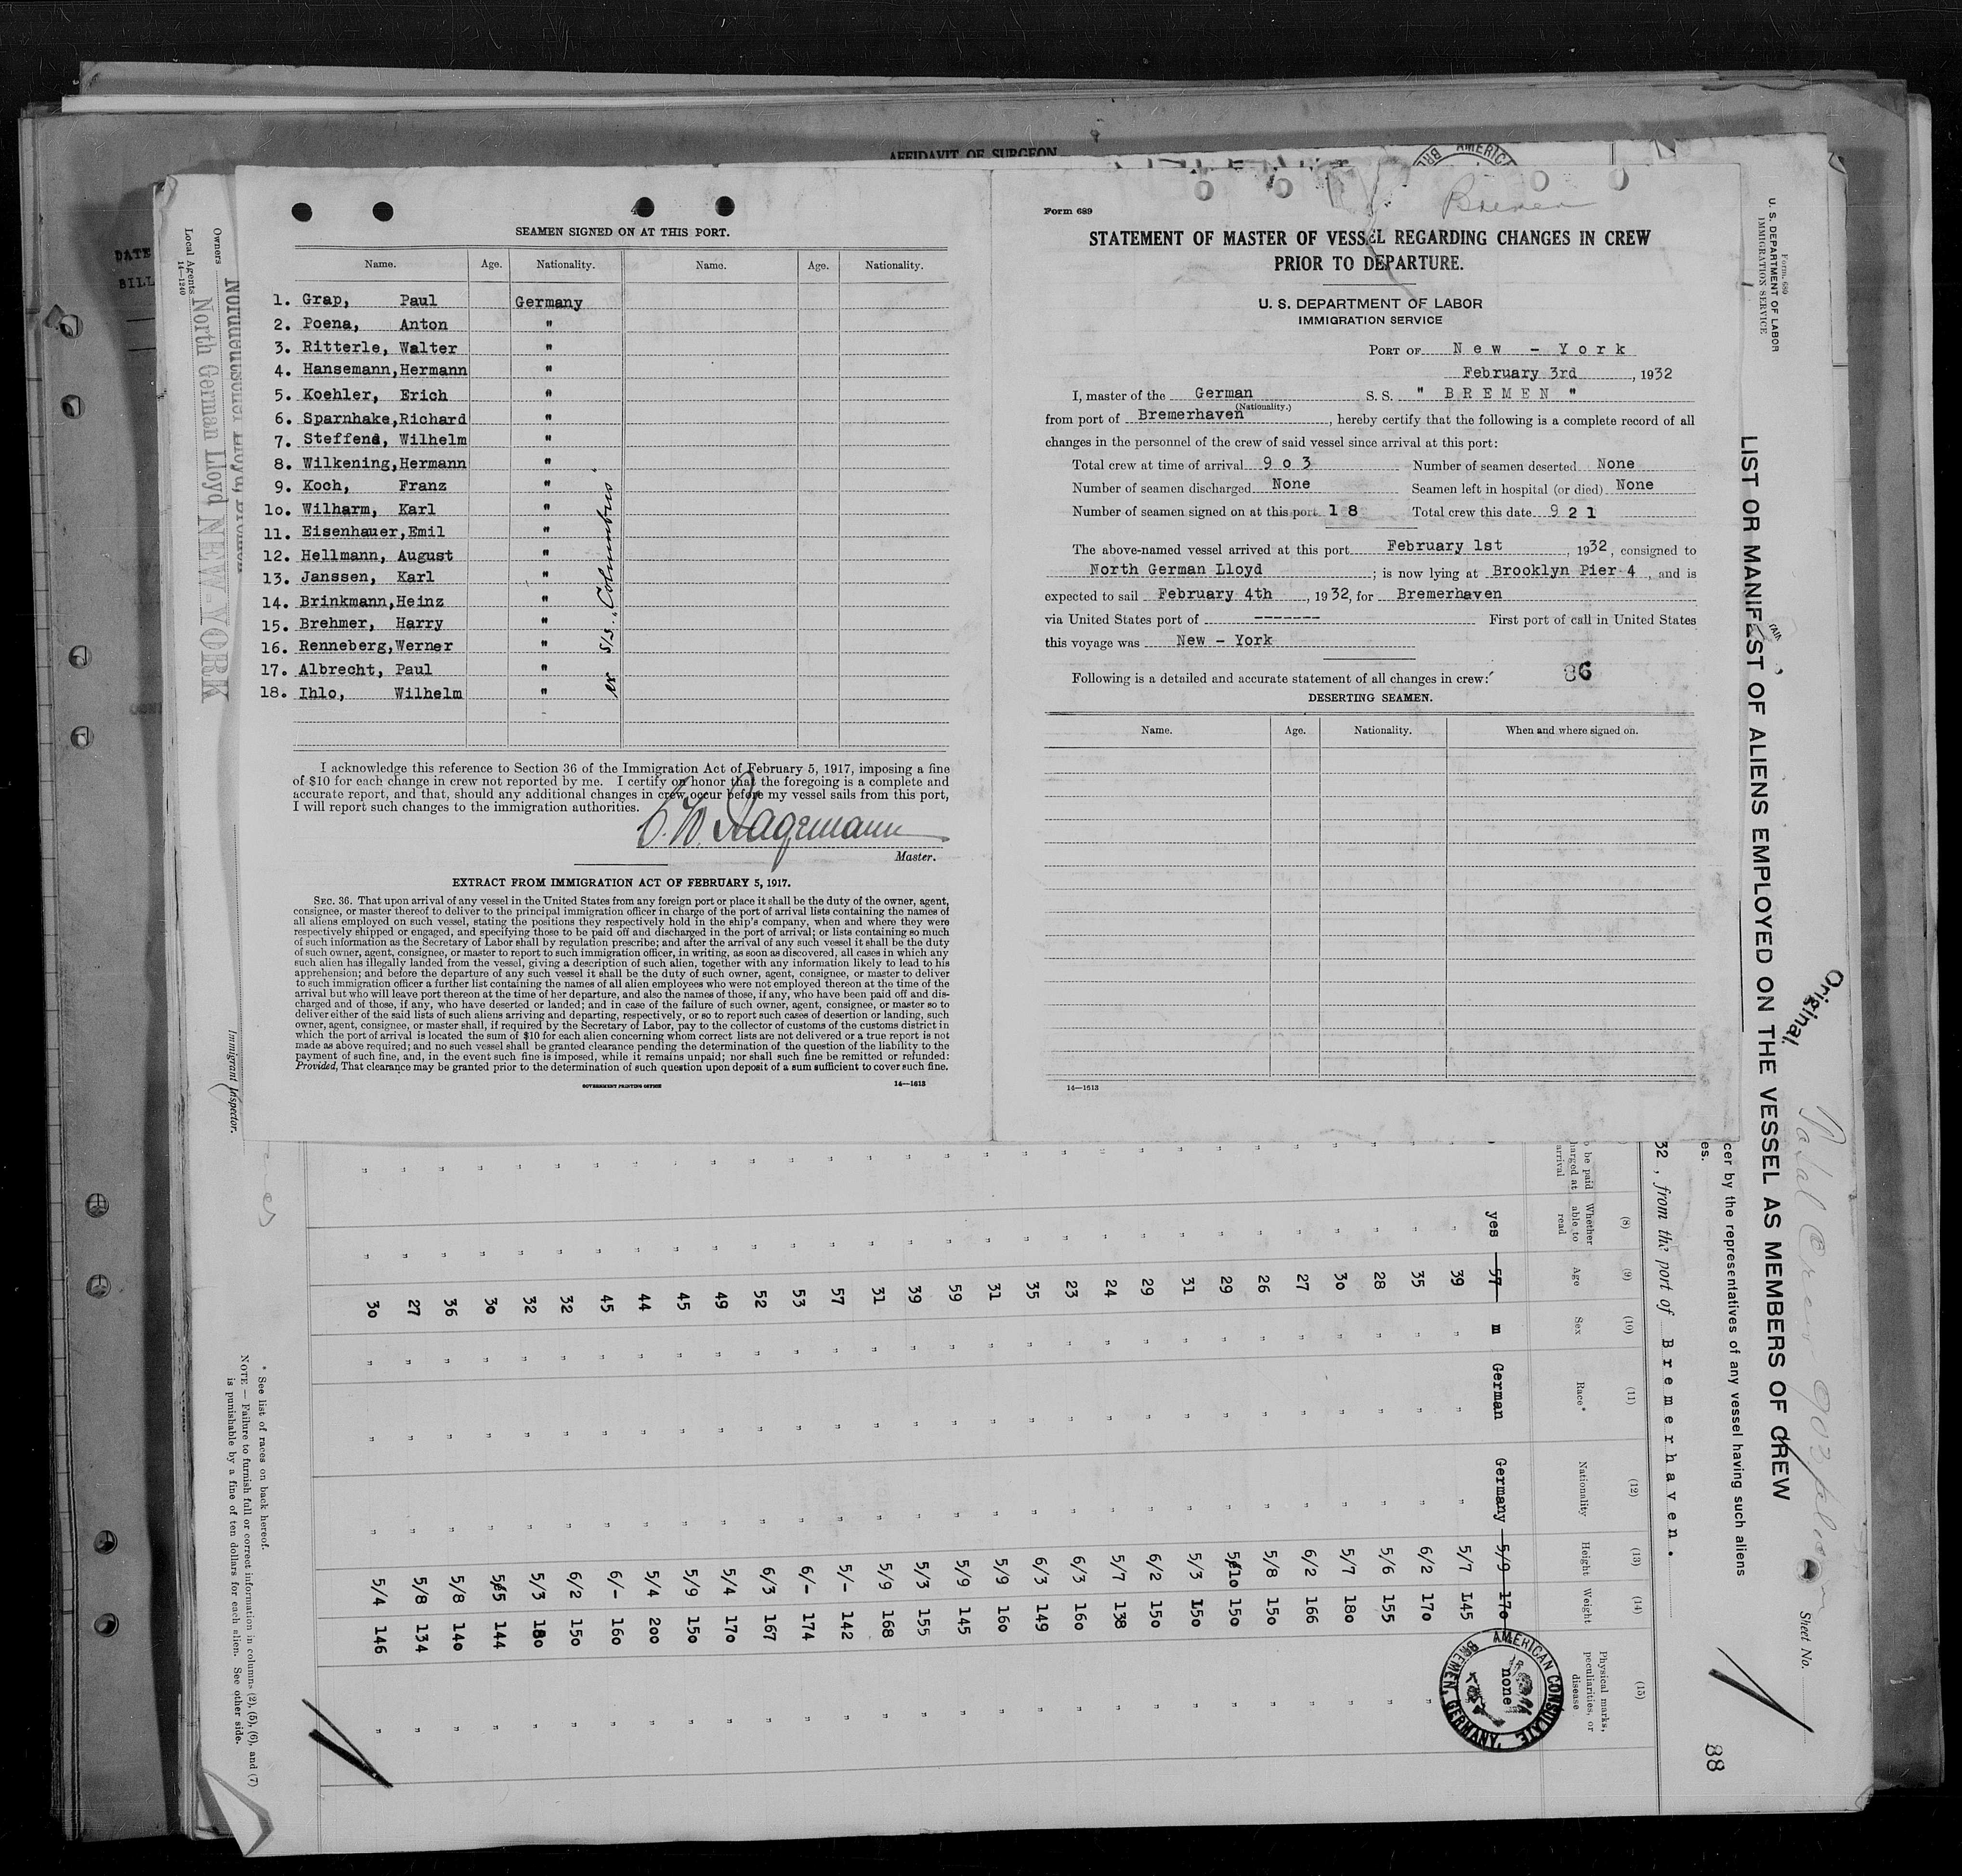 AFFIDAVIT OF SURGEON
SEAMEN SIGNED ON AT THIS PORT.
Name. Age. Nationality. Name. Age. Nationality.
1. Grap, Paul Germany
2. Poena, Anton "
3. Ritterle, Walter "
4. Hansemann, Hermann "
5. Koehler, Erich "
6. Sparnhake, Richard "
7. Steffens, Wilhelm "
8. Wilkening, Hermann "
9. Koch, Franz "
10. Wilharm, Karl "
11. Eisenhauer, Emil "
12. Hellmann, August "
13. Janssen, Karl "
14. Brinkmann, Heinz "
15. Brehmer, Harry "
16. Renneberg, Werner "
17. Albrecht, Paul "
18. Ihlo, Wilhelm "
S/S. Columbus
I acknowledge this reference to Section 36 of the Immigration Act of February 5, 1917, imposing a fine
of $10 for each change in crew not reported by me. I certify on honor that the foregoing is a complete and
accurate report, and that, should any additional changes in crew occur before my vessel sails from this port,
I will report such changes to the immigration authorities.
Master.
EXTRACT FROM IMMIGRATION ACT OF FEBRUARY 5, 1917.
SEC. 36. That upon arrival of any vessel in the United States from any foreign port or place it shall be the duty of the owner, agent,
consignee, or master thereof to deliver to the principal immigration officer in charge of the port of arrival lists containing the names of
all aliens employed on such vessel, stating the positions they respectively hold in the ship's company, when and where they were
respectively shipped or engaged, and specifying those to be paid off and discharged in the port of arrival; or lists containing so much
of such information as the Secretary of Labor shall by regulation prescribe; and after the arrival of any such vessel it shall be the duty
of such owner, agent, consignee, or master to report to such immigration officer, in writing, as soon as discovered, all cases in which any
such alien has illegally landed from the vessel, giving a description of such alien, together with any information likely to lead to his
apprehension; and before the departure of any such vessel it shall be the duty of such owner, agent, consignee, or master to deliver
to such immigration officer a further list containing the names of all alien employees who were not employed thereon at the time of the
arrival but who will leave port thereon at the time of her departure, and also the names of those, if any, who have been paid off and dis-
charged and of those, if any, who have deserted or landed; and in case of the failure of such owner, agent, consignee, or master so to
deliver either of the said lists of such aliens arriving and departing, respectively, or so to report such cases of desertion or landing, such
owner, agent, consignee, or master shall, if required by the Secretary of Labor, pay to the collector of customs of the customs district in
which the port of arrival is located the sum of $10 for each alien concerning whom correct lists are not delivered or a true report is not
made as above required; and no such vessel shall be granted clearance pending the determination of the question of the liability to the
payment of such fine, and, in the event such fine is imposed, while it remains unpaid; nor shall such fine be remitted or refunded:
Provided, That clearance may be granted prior to the determination of such question upon deposit of a sum sufficient to cover such fine.
GOVERNMENT PRINTING OFFICE 14—1613
Bremen
Form 689
STATEMENT OF MASTER OF VESSEL REGARDING CHANGES IN CREW
PRIOR TO DEPARTURE.
U. S. DEPARTMENT OF LABOR
IMMIGRATION SERVICE
PORT OF New - York
February 3rd, 1932
I, master of the German S. S. " BREMEN "
(Nationality.)
from port of Bremerhaven, hereby certify that the following is a complete record of all
changes in the personnel of the crew of said vessel since arrival at this port:
Total crew at time of arrival 9o3 Number of seamen deserted None
Number of seamen discharged None Seamen left in hospital (or died) None
Number of seamen signed on at this port 18 Total crew this date 921
The above-named vessel arrived at this port February 1st, 1932, consigned to
North German Lloyd; is now lying at Brooklyn Pier 4, and is
expected to sail February 4th, 1932, for Bremerhaven
via United States port of ------- First port of call in United States
this voyage was New - York
Following is a detailed and accurate statement of all changes in crew:
86
DESERTING SEAMEN.
Name. Age. Nationality. When and where signed on.
14—1613
Form 689
U. S. DEPARTMENT OF LABOR
IMMIGRATION SERVICE
LIST OR MANIFEST OF ALIENS EMPLOYED ON THE VESSEL AS MEMBERS OF CREW
Original
Total Crew 903
Sheet No.
88
cer by the representatives of any vessel having such aliens
es.
32, from the port of Bremerhaven.
(8) (9) (10) (11) (12) (13) (14) (15)
be paid
harged at
arrival
Whether
able to
read
Age Sex Race* Nationality Height Weight
Physical marks,
peculiarities, or
disease
yes 57 m German Germany 5/9 17o none
" 39 " " " 5/7 145
" 35 " " " 6/2 17o "
" 28 " " " 5/6 155 "
" 3o " " " 5/7 18o "
" 27 " " " 6/2 166 "
" 26 " " " 5/8 15o "
" 29 " " " 5/1o 15o "
" 31 " " " 5/3 15o "
" 29 " " " 6/2 15o "
" 24 " " " 5/7 138 "
" 23 " " " 6/3 16o "
" 35 " " " 6/3 149 "
" 31 " " " 5/9 16o "
" 59 " " " 5/9 145 "
" 39 " " " 5/3 155 "
" 31 " " " 5/9 168 "
" 57 " " " 5/- 142 "
" 53 " " " 6/- 174 "
" 52 " " " 6/3 167 "
" 49 " " " 5/4 17o "
" 45 " " " 5/9 15o "
" 44 " " " 5/4 2oo "
" 45 " " " 6/- 16o "
" 32 " " " 6/2 15o "
" 32 " " " 5/3 18o "
" 3o " " " 5/5 144 "
" 36 " " " 5/8 14o "
" 27 " " " 5/8 134 "
" 3o " " " 5/4 146 "
AMERICAN CONSULATE
BREMEN, GERMANY.
* See list of races on back hereof.
NOTE — Failure to furnish full or correct information in columns (2), (5), (6), and (7)
is punishable by a fine of ten dollars for each alien. See other side.
Owners
Local Agents North German Lloyd NEW-YORK
14—1240
Immigrant Inspector.
DATE
BILL